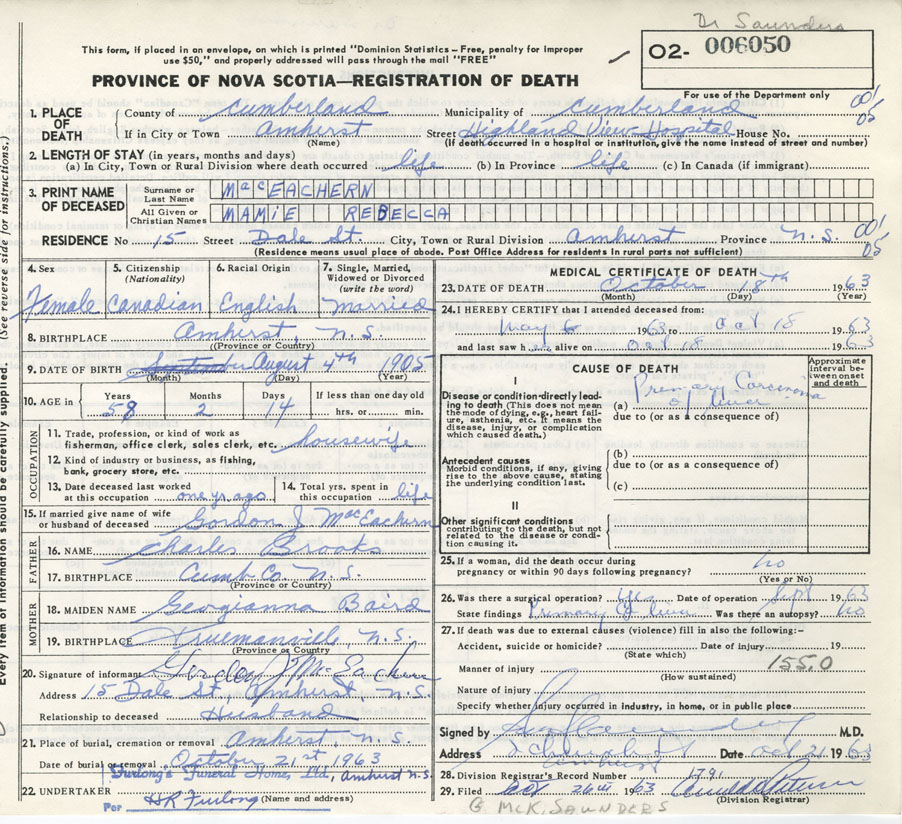 Dr Saunders
This form, if placed in an envelope, on which is printed "Dominion Statistics – Free, penalty for improper
use $50," and properly addressed will pass through the mail "FREE"
02- 006050
For use of the Department only
PROVINCE OF NOVA SCOTIA—REGISTRATION OF DEATH
1. PLACE OF DEATH
County of Cumberland Municipality of Cumberland 001
If in City or Town Amherst Street Highland View Hospital House No. 05
(Name) (If death occurred in a hospital or institution, give the name instead of street and number)
2. LENGTH OF STAY (in years, months and days)
(a) In City, Town or Rural Division where death occurred life (b) In Province life (c) In Canada (if immigrant).
3. PRINT NAME OF DECEASED
Surname or Last Name MacEACHERN
All Given or Christian Names MAMIE REBECCA
RESIDENCE No 15 Street Dale St. City, Town or Rural Division Amherst Province N.S. 001 05
(Residence means usual place of abode. Post Office Address for residents in rural parts not sufficient)
4. Sex Female
5. Citizenship (Nationality) Canadian
6. Racial Origin English
7. Single, Married, Widowed or Divorced (write the word) Married
8. BIRTHPLACE Amherst, N.S.
(Province or Country)
9. DATE OF BIRTH August 4th 1905
(Month) (Day) (Year)
10. AGE in Years 58 Months 2 Days 14 If less than one day old
hrs. or min.
OCCUPATION
11. Trade, profession, or kind of work as
fisherman, office clerk, sales clerk, etc. housewife
12. Kind of industry or business, as fishing,
bank, grocery store, etc.
13. Date deceased last worked at this occupation one yr. ago
14. Total yrs. spent in this occupation life
15. If married give name of wife
or husband of deceased Gordon J. MacEachern
FATHER
16. NAME Charles Brooks
17. BIRTHPLACE Cumb. Co. N.S.
(Province or Country)
MOTHER
18. MAIDEN NAME Georgianna Baird
19. BIRTHPLACE Truemanville, N.S.
(Province or Country)
20. Signature of informant Gordon J McEachern
Address 15 Dale St. Amherst, N.S.
Relationship to deceased Husband
21. Place of burial, cremation or removal Amherst, N.S.
Date of burial or removal October 21st 1963
Furlong's Funeral Home, Ltd, Amherst N.S.
22. UNDERTAKER HR Furlong (Name and address)
Per
MEDICAL CERTIFICATE OF DEATH
23. DATE OF DEATH October 18th 1963
(Month) (Day) (Year)
24. I HEREBY CERTIFY that I attended deceased from:
May 6 1963 to Oct 18 1963
and last saw h alive on Oct 18 1963
CAUSE OF DEATH
Approximate interval between onset and death
I
Disease or condition directly leading to death (This does not mean
the mode of dying, e.g., heart failure, asthenia, etc. It means the
disease, injury, or complication
which caused death.)
(a) Primary Carcinoma of liver
due to (or as a consequence of)
Antecedent causes
Morbid conditions, if any, giving
rise to the above cause, stating
the underlying condition last.
(b)
due to (or as a consequence of)
(c)
II
Other significant conditions
contributing to the death, but not
related to the disease or condition causing it.
25. If a woman, did the death occur during
pregnancy or within 90 days following pregnancy? no
(Yes or No)
26. Was there a surgical operation? yes Date of operation Sept 1963
State findings Primary liver Was there an autopsy? no
27. If death was due to external causes (violence) fill in also the following:–
Accident, suicide or homicide? Date of injury 19
(State which)
Manner of injury 155.0
(How sustained)
Nature of injury
Specify whether injury occurred in industry, in home, or in public place
Signed by M.D.
Address Amherst Date Oct 21 1963
28. Division Registrar's Record Number 1791
29. Filed Oct 26th 1963
(Division Registrar)
G MCK. SAUNDERS
Every item of information should be carefully supplied. (See reverse side for instructions.)